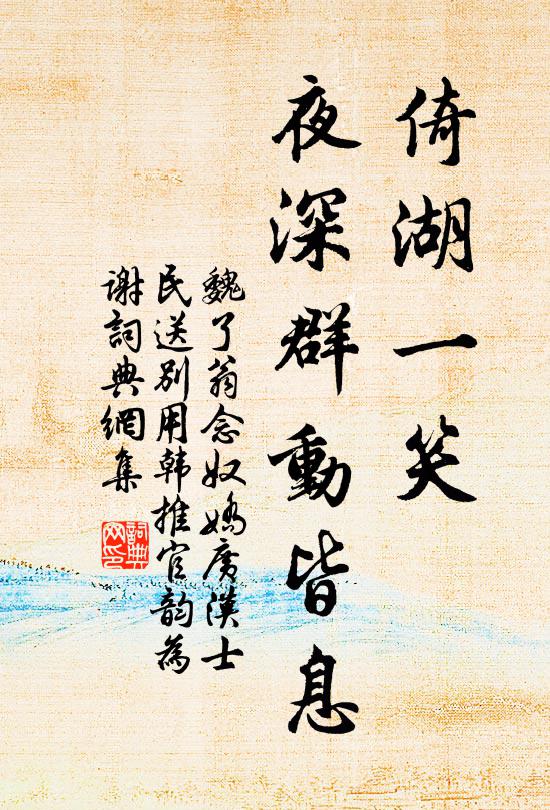 倚湖一笑
夜深群動皆息
魏了翁念奴嬌廣漢士
民送別用韩推官韵為
謝詞典網集
詞典網印